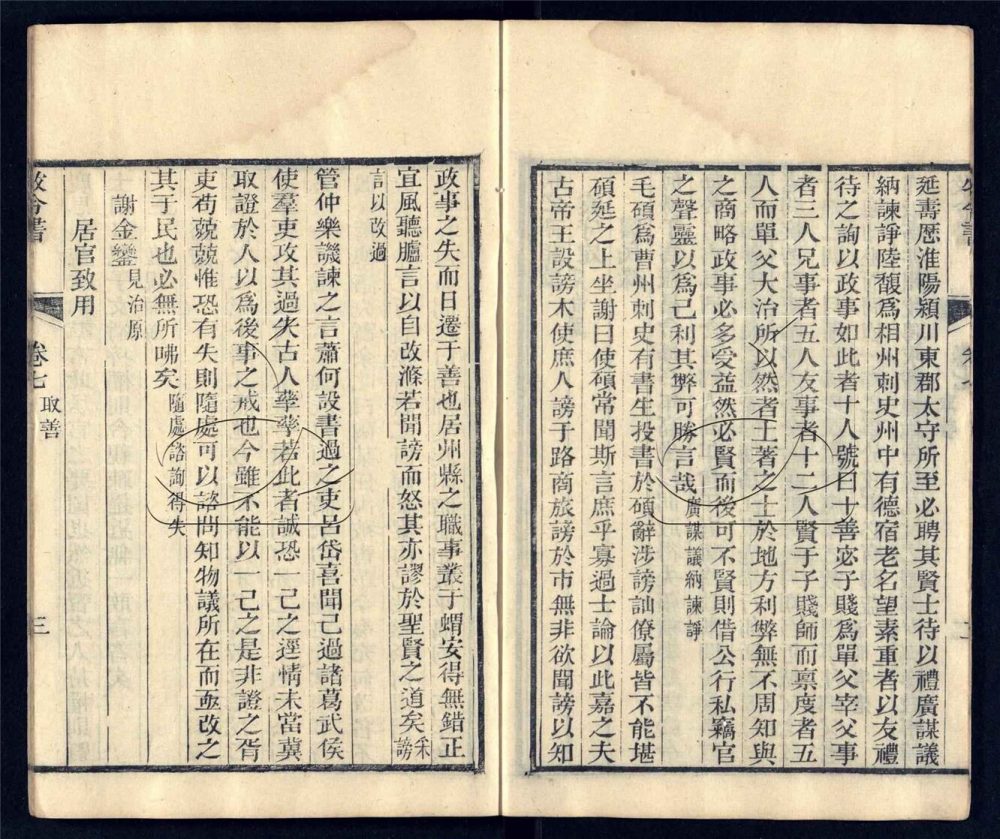 延壽歷淮陽頴川東郡太守所至必聘其賢士待以禮廣謀議
納諫諍陸馥爲相州刺史州中有德宿老名望素重者以友禮
待之詢以政事如此者十人號曰十善宓子賤爲單父宰父事
者三人兄事者五人友事者十二人賢于子賤師而禀度者五
人而單父大治所以然者土著之士於地方利弊無不周知與
之商略政事必多受益然必賢而後可不賢則借公行私竊官
之聲靈以爲己利其弊可勝言哉廣謀議納諫諍
毛碩爲曹州刺史有書生投書於碩辭涉謗訕僚屬皆不能堪
碩延之上坐謝曰使碩常聞斯言庶乎寡過士論以此嘉之夫
古帝王設謗木使庶人謗于路商旅謗於市無非欲聞謗以知
政事之失而日遷于善也居州縣之職事叢于蝟安得無錯正
宜風聽臚言以自改滌若聞謗而怒其亦謬於聖賢之道矣采謗
言以改過
管仲樂譏諫之言蕭何設書過之吏呂岱喜聞己過諸葛武侯
使羣吏攻其過失古人孳孳若此者誠恐一己之逕情未當冀
取證於人以爲後事之戒也今雖不能以一己之是非證之胥
吏苟兢兢惟恐有失則隨處可以諮問知物議所在而亟改之
其于民也必無所咈矣隨處諮詢得失
謝金鑾見治原
居官致用
牧令書
卷七
取善
三